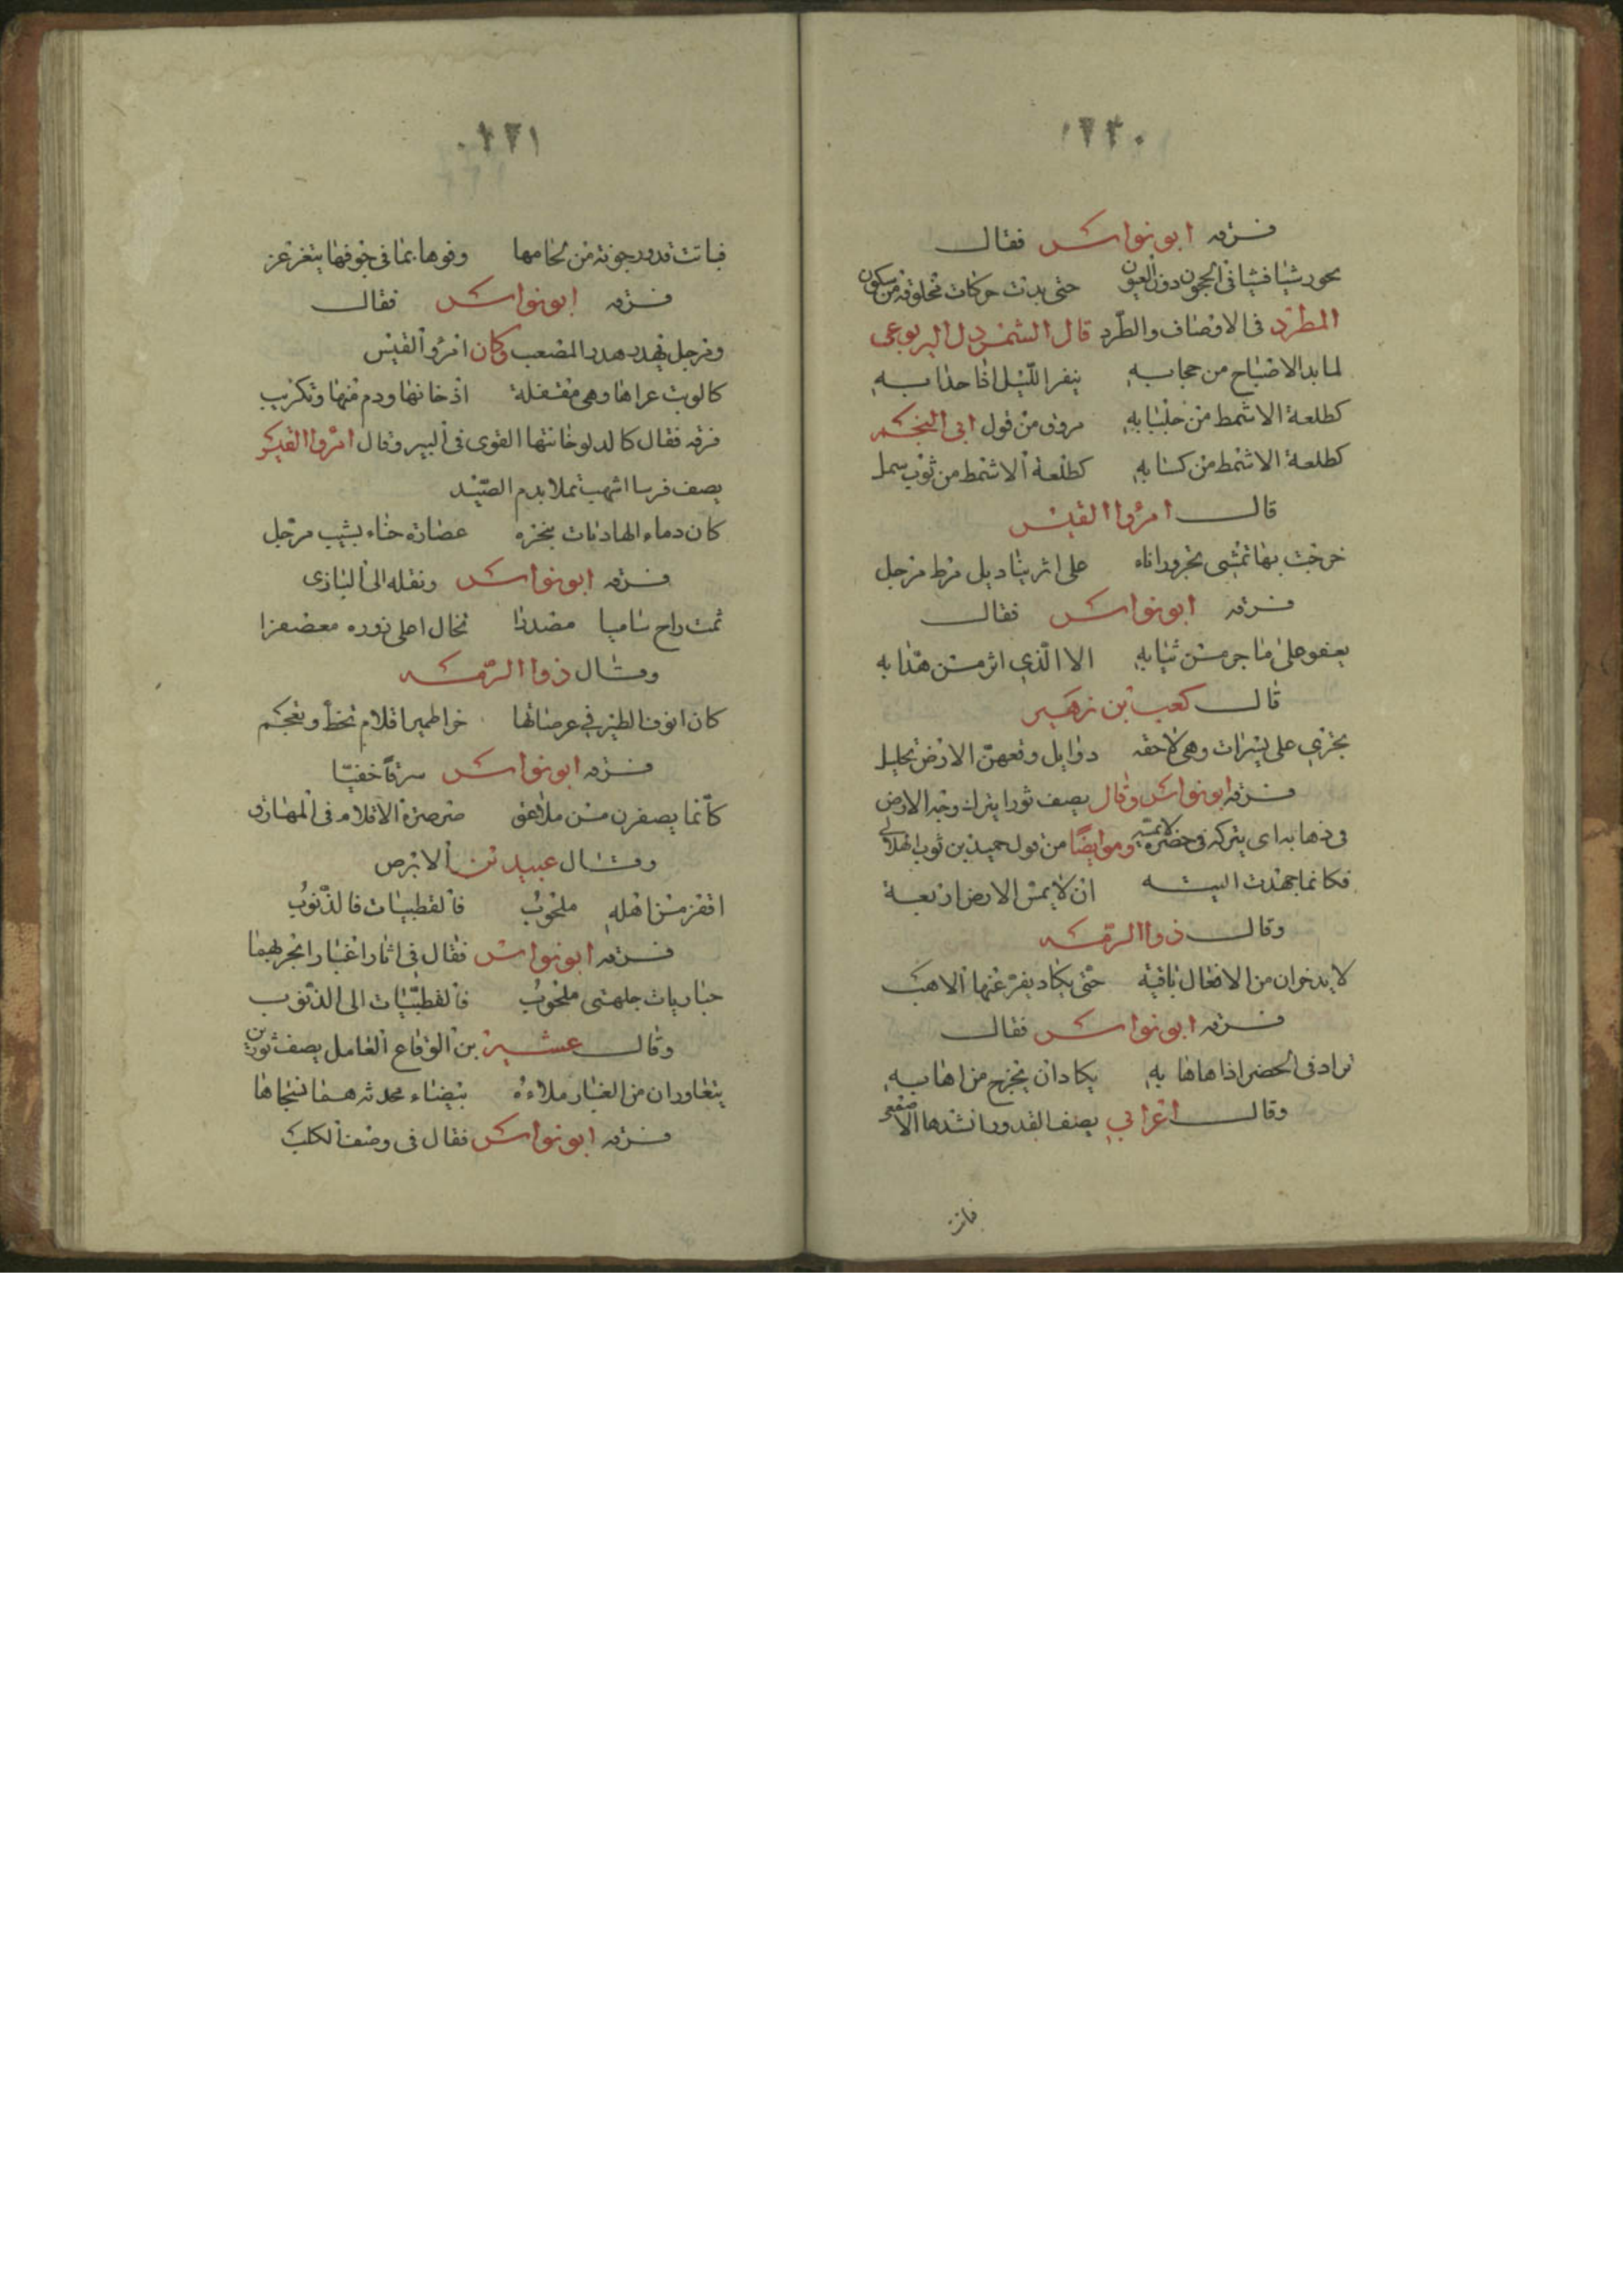 ٢٢٠
فسرقه ابو نواس فقال
يحور شيا فشيا في الحجون دون العيون حتى بدت حركات مخلوقة من سكون
المطرد في الاوصاف والطرد قال الشمردل اليربوعي
لما بدا الاصباح من حجابه ينفرا الليل اذا حدا به
كطلعة الاشمط من جلبابه مروق من قول ابي النجم
كطلعة الاشمط من كسابه كطلعة الاشمط من ثوب سمل
قال امرؤا القيس
خرجت بها تمشي تجر وراناه على اثرينا ديل مرط مرجل
فسرقه ابو نواس فقال
يعفو على ما جر من ثيابه الا الذي اثر من هدابه
قال كعب بن زهير
تجري على يسرات وهي لاحقه دوابل وقعهن الارض تحليل
فسرقه ابو نواس وقال يصف ثورا يترك وجه الارض
في ذهابه اي يتركه في حضره لا يمسه وهو ايضا من قول حميد بن ثوب الهلالي
فكانما جهدت اليته ان لا يمس الارض اربعة
وقال ذوا الرمه
لا يدخران من الافعال باقية حتى يكاد يفر عنها الاهب
فسرقه ابو نواس فقال
تراه في الحضر اذا هاها به يكاد ان يخرج من اهابه
وقال اعرابي يصف القدور انشدها الاصمعي
فباتت
٢٢١
فباتت قدور جونة من لحامها وفوها بما في جوفها يتغرغر
فسرقه ابو نواس فقال
ومرجل يهدر هدر المصعب وكان امرؤ القيس
كالوبت عراها وهي مثقلة اذ خانها ودم منها وتكريب
فرقه فقال كالدلو خانتها القوى في البير وقال امرؤا القيس
يصف فرسا اشهب تملا بدم الصيد
كان دماء الهاديات بنحره عصارة حناء بشيب مرجل
فسرقه ابو نواس ونقله الى البازى
ثمت راح ساميا مصدرا تخال اعلى زوره معصفرا
وقال ذوا الرمه
كان انوف الطير في عرصاتها خراطيم اقلام تخط وتعجم
فسرقه ابو نواس سرقا خفيا
كأنما يصفرن من ملاعق صرصرة الاقلام في المهارق
وقال عبيد بن الابرص
اقفر من اهله ملحوب فالقطبيات فالذنوب
فسرقه ابو نواس فقال في اثار اغبارا
حباريات جلهتي ملحوب فالقطبيات الى الذنوب
وقال بن الوقاع العامل يصف ثورين
يتعاوران من الغبار ملاءة بيضاء محدثه هما نسجاها
فسرقه ابو نواس فقال في وصف الكلب